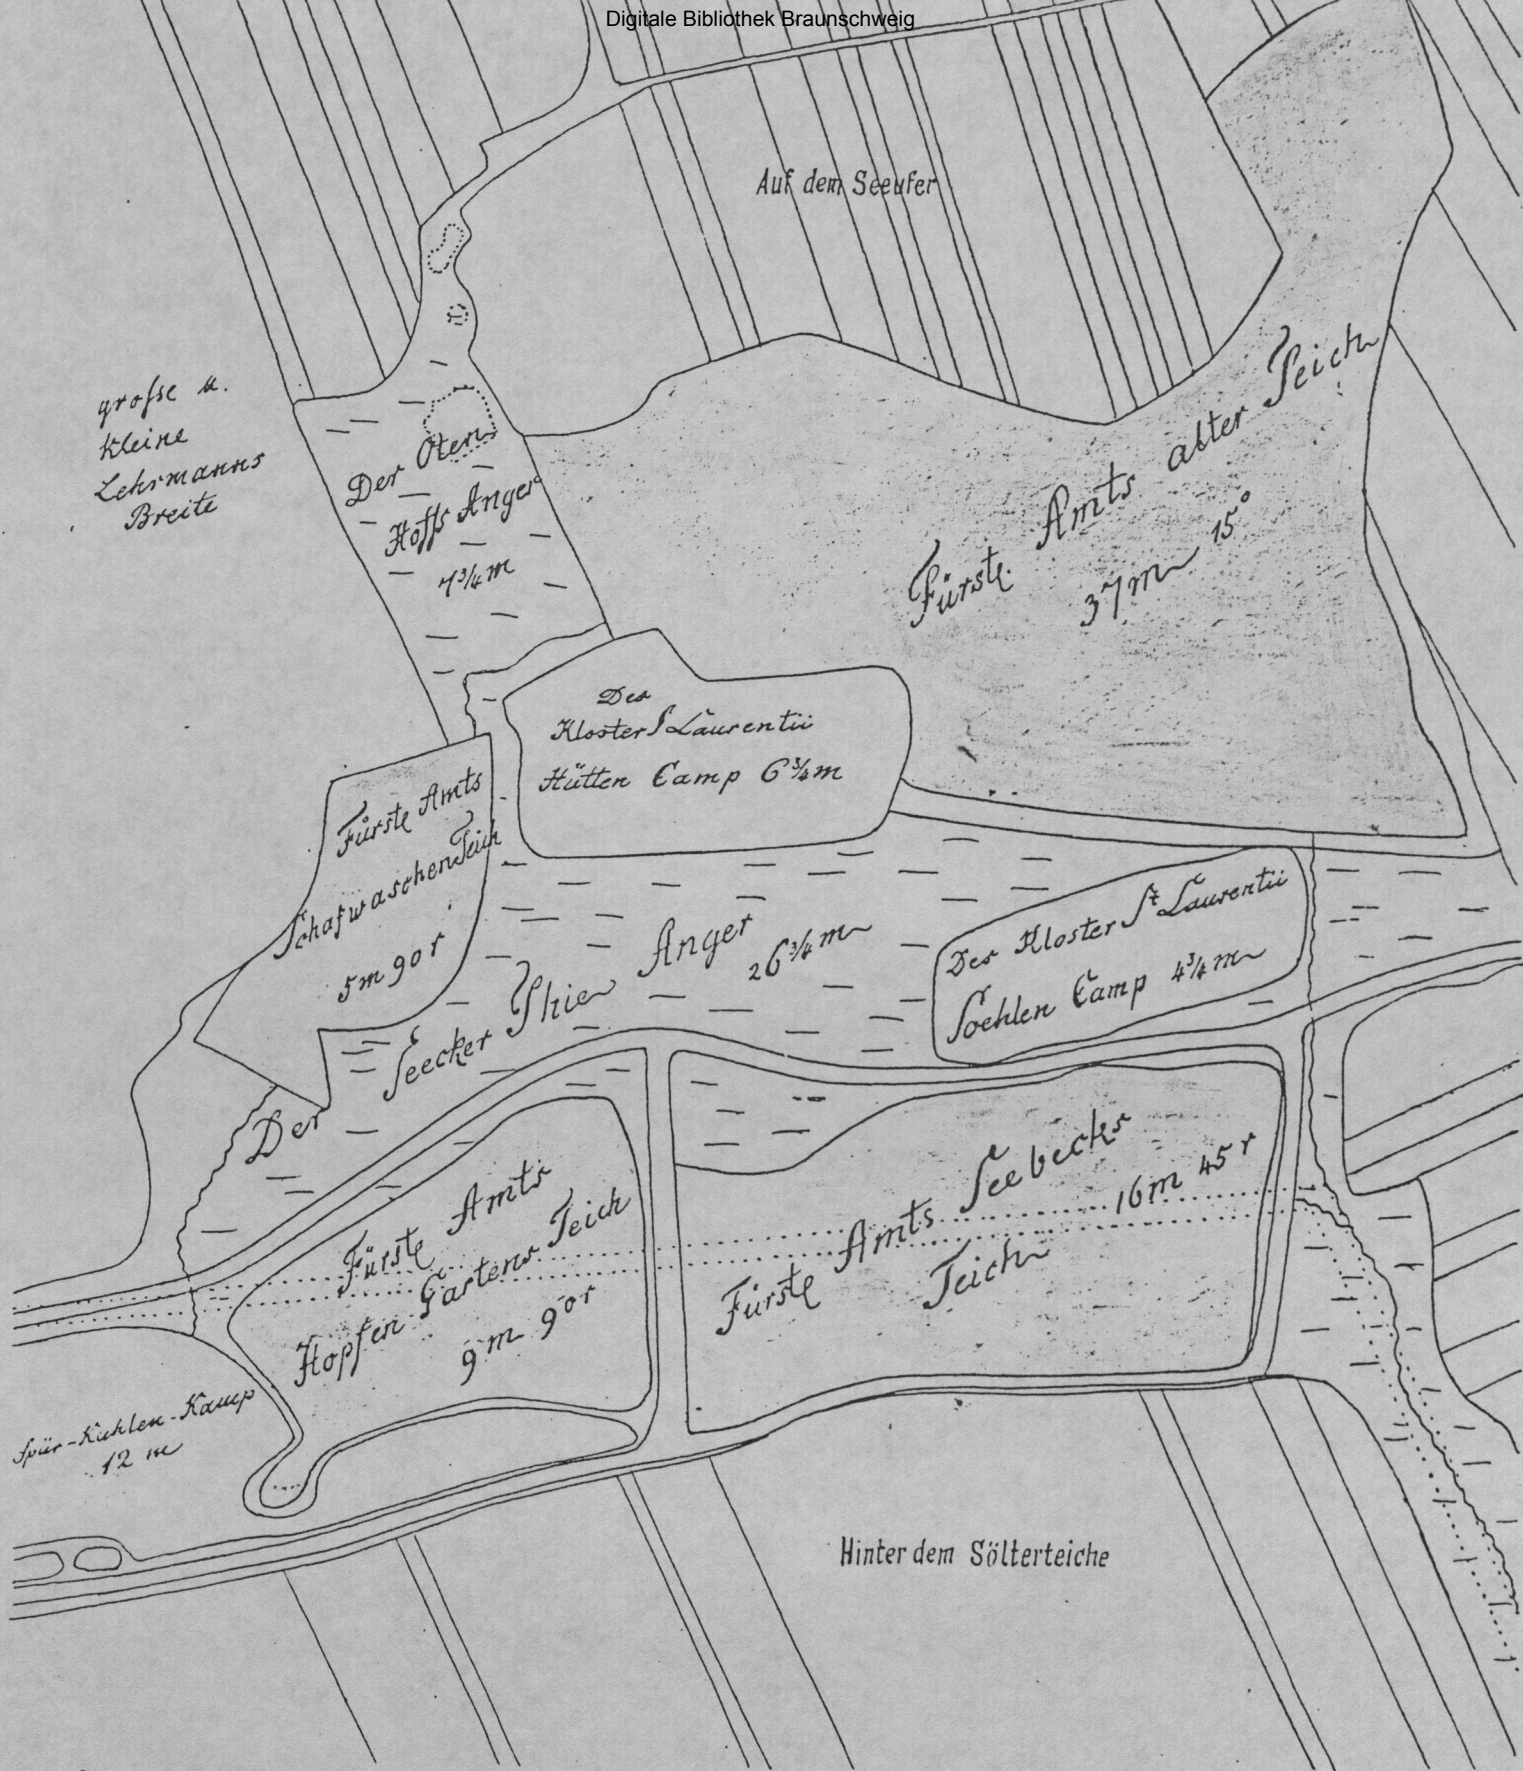 Digitale Bibliothek Braunschweig
Auf dem Seeufer
grosse u.
kleine
Lehrmanns
Breite
Der Oten
Hoffs Anger
7 3/4 m
Fürstl. Amts alter Teich
37 m 15°
Des
Kloster S Laurentii
Hütten Camp 6 3/4 m
Fürstl Amts
Schafwaschen Teich
5 m 90 r
Der Seecker Thie Anger 26 3/4 m
Des Kloster St Laurentii
Soehlen Camp 4 3/4 m
Fürstl Amts
Hopfen Gartens Teich
9 m 90 r
Fürstl Amts Seebecks
Teich 16 m 45 r
Spür-Kuhlen-Kamp
12 m
Hinter dem Sölterteiche